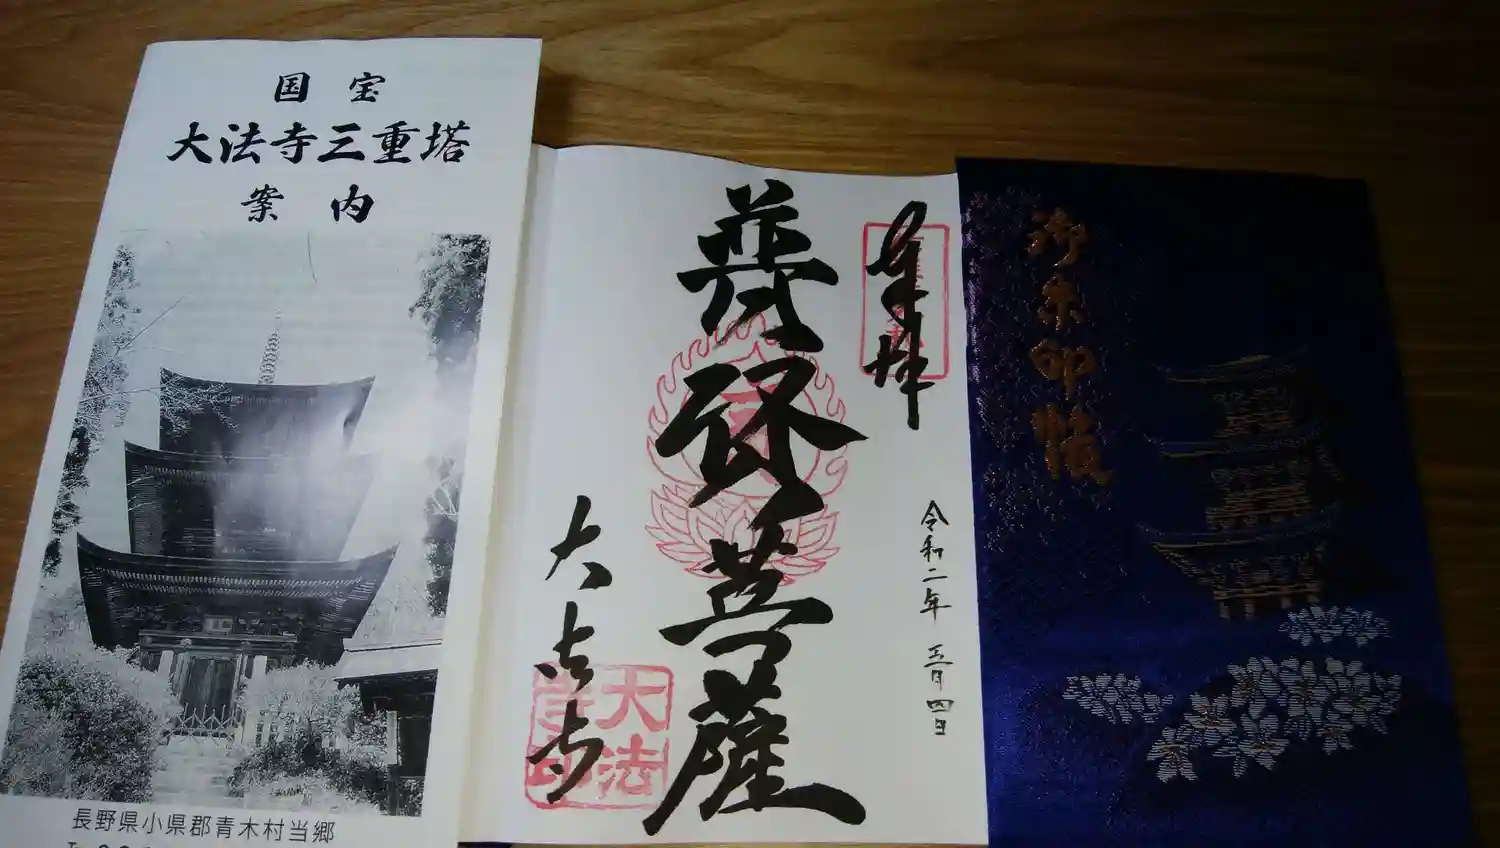 国宝
大法寺三重塔
案内
長野県小県郡青木村当郷
奉拝
令和二年 三月四日
普賢菩薩
大法寺
大法
寺印
御朱印帳